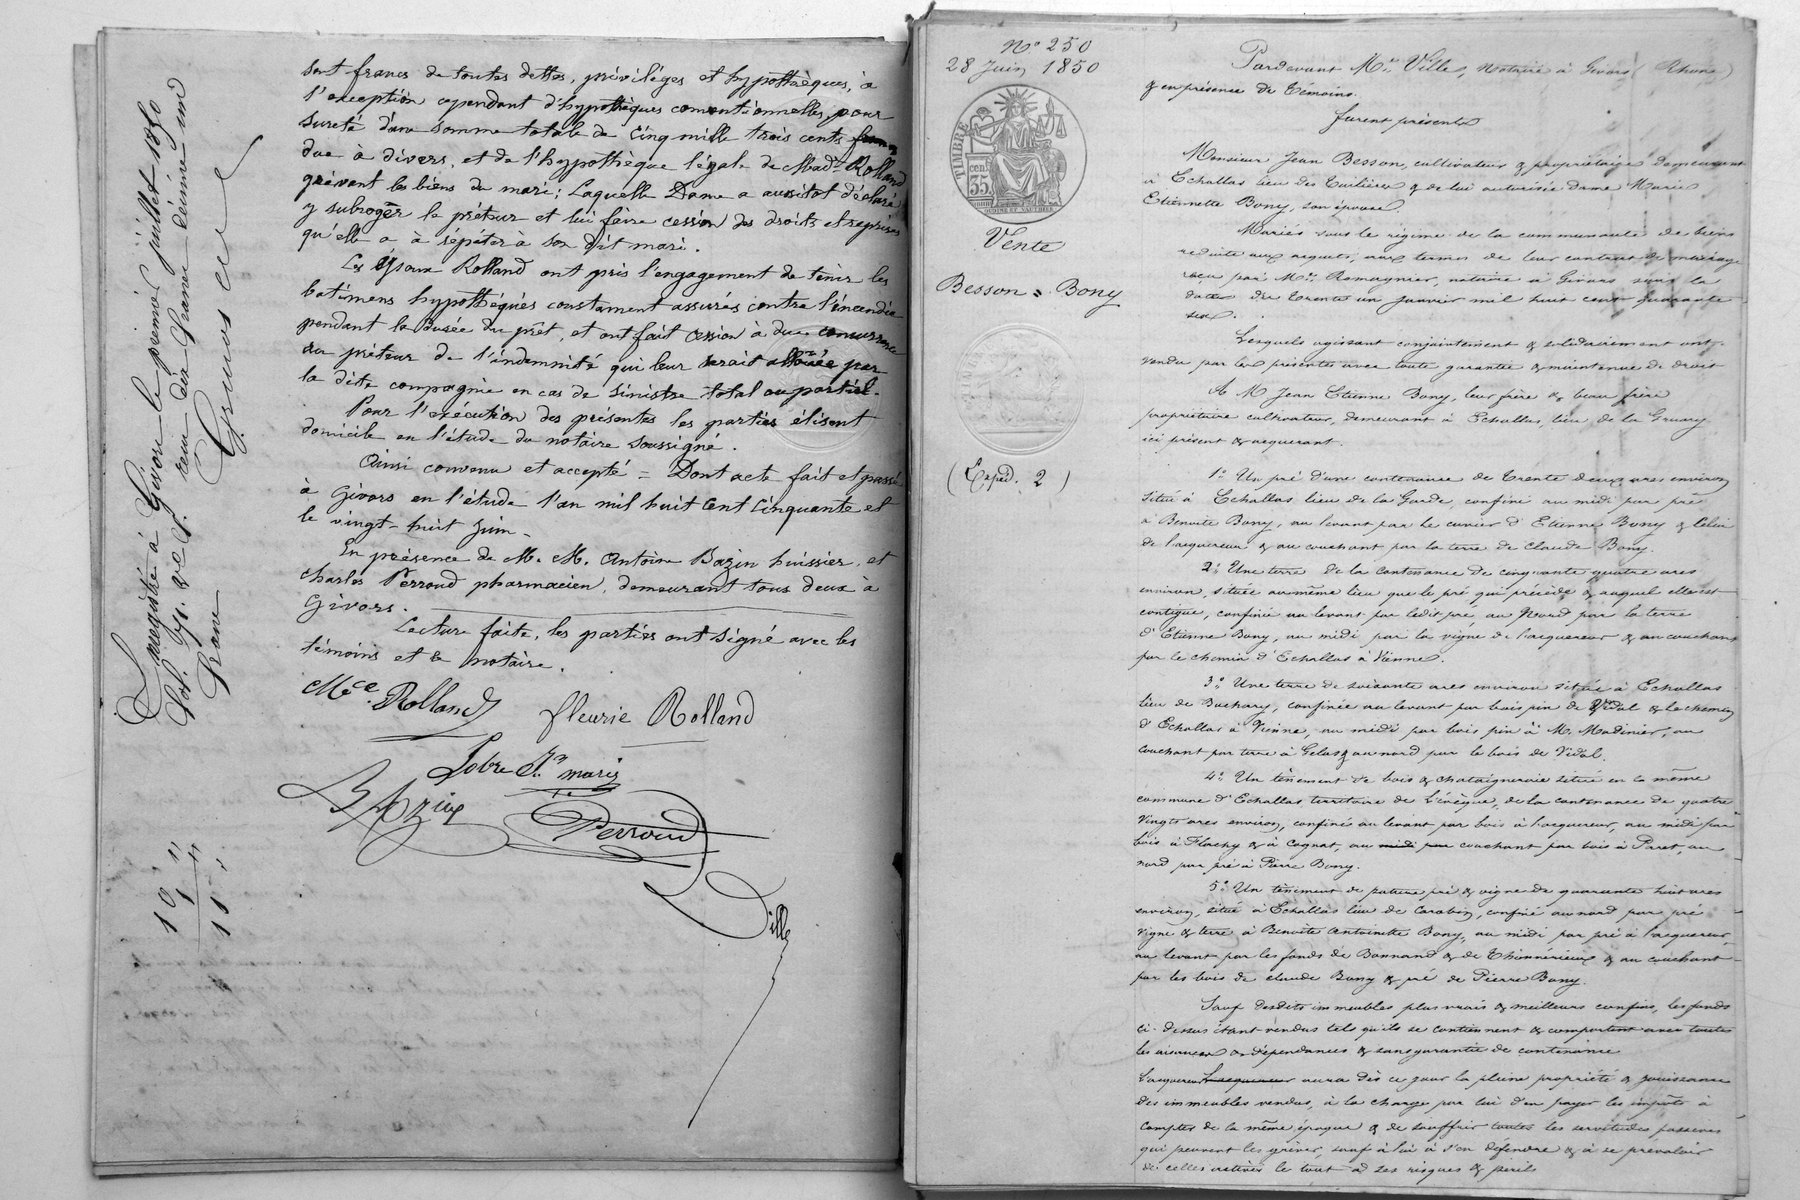 sont francs de toutes dettes, privilèges et hypothèques, à
l'exception cependant d'hypothèques conventionnelles, pour
sureté d'une somme totale de cinq mille trois cents francs
due à divers, et de l'hypothèque légale de Made Rolland
grévant les biens du mari; Laquelle Dame a aussitot déclaré
y subroger le préteur et lui faire cession des droits et reprises
qu'elle a à répéter à son dit mari.
Les Epoux Rolland ont pris l'engagement de tenir les
batimens hypothéqués constament assurés contre l'incendie
pendant la durée du prêt, et ont fait cession à due concurrence
au préteur de l'indemnité qui leur serait allouée par
la dite compagnie en cas de sinistre total ou partiel.
Pour l'exécution des présentes les parties élisent
domicile en l'étude du notaire soussigné.
Ainsi convenu et accepté = Dont acte fait et passé
à Givors en l'étude l'an mil huit cent cinquante et
le vingt-huit juin.
En présence de M. M. Antoine Bazin huissier, et
Charles Perroud pharmacien, demeurant tous deux à
Givors.
Lecture faite, les parties ont signé avec les
témoins et le notaire.
Rolland
fleurie Rolland
Bazin
Perroud
Ville
Enregistré à Givors le premier juillet 1850
fol. 71. reçu dix francs décime un
franc
10 "
1 "
11 "
No 250
28 Juin 1850
TIMBRE
35 cen.
Vente
Besson = Bony
(Expéd. 2)
Pardevant Me Ville, notaire à Givors (Rhône)
& en présence de témoins.
furent présents
Monsieur Jean Besson, cultivateur & propriétaire demeurant
à Echallas lieu des Tuilières & de lui autorisée dame Marie
Etiennette Bony, son épouse.
Mariés sous le régime de la communauté de biens
réduite aux acquets, aux termes de leur contrat de mariage
reçu par Me Romagnier, notaire à Givors sous la
date du trente un janvier mil huit cent quarante
six.
Lesquels agissant conjointement & solidairement ont
vendu par les présentes avec toute garantie & maintenue de droit
A M Jean Etienne Bony, leur frère & beau frère
propriétaire cultivateur, demeurant à Echallas, lieu de la
ici présent & acquerant.
1o Un pré d'une contenance de trente deux ares environ
situé à Echallas lieu de la Garde, confiné au midi par pré
à Benoite Bony, au levant par le cuvier d'Etienne Bony & celui
de l'acquereur & au couchant par la terre de Claude Bony.
2o Une terre de la contenance de cinquante quatre ares
environ, située au même lieu que le pré qui précède & auquel elle est
contigue, confinée au levant par ledit pré, au Nord par la terre
d'Etienne Bony, au midi par la vigne de l'acquereur & au couchant
par le chemin d'Echallas à Vienne.
3o Une terre de soixante ares environ située à Echallas
lieu de Buchary, confinée au levant par bois pin de Vidal & le chemin
d'Echallas à Vienne, au midi par bois pin à M. Madinier, au
couchant par terre à Gelas & au nord par le bois de Vidal.
4o Un tènement de bois & chataigneraie situé en la même
commune d'Echallas territoire de L'évêque, de la contenance de quatre
vingts ares environ, confiné au levant par bois à l'acquereur, au midi par
bois à Flachy & à Cognat, au midi par couchant par bois à Paret, au
nord par pré à Pierre Bony.
5o Un tènement de pature pré & vigne de quarante huit ares
environ, situé à Echallas lieu de Carabin, confiné au nord par pré
vigne & terre à Benoite Antoinette Bony, au midi par pré à l'acquereur,
au levant par les fonds de Bonnand & de Thonnérieux & au couchant
par les bois de claude Bony & pré de Pierre Bony.
Sauf desdits immeubles plus vrais & meilleurs confins, les fonds
ci-dessus étant vendus tels qu'ils se contiennent & comportent avec toutes
les aisances & dépendances & sans garantie de contenance
L'acquereur L'acquereur aura dès ce jour la pleine propriété & jouissance
des immeubles vendus, à la charge par lui d'en payer les impôts à
compter de la même époque & de souffrir toutes les servitudes passives
qui peuvent les gréver, sauf à lui à s'en défendre & à se prévaloir
de celles actives le tout à ses risques & perils